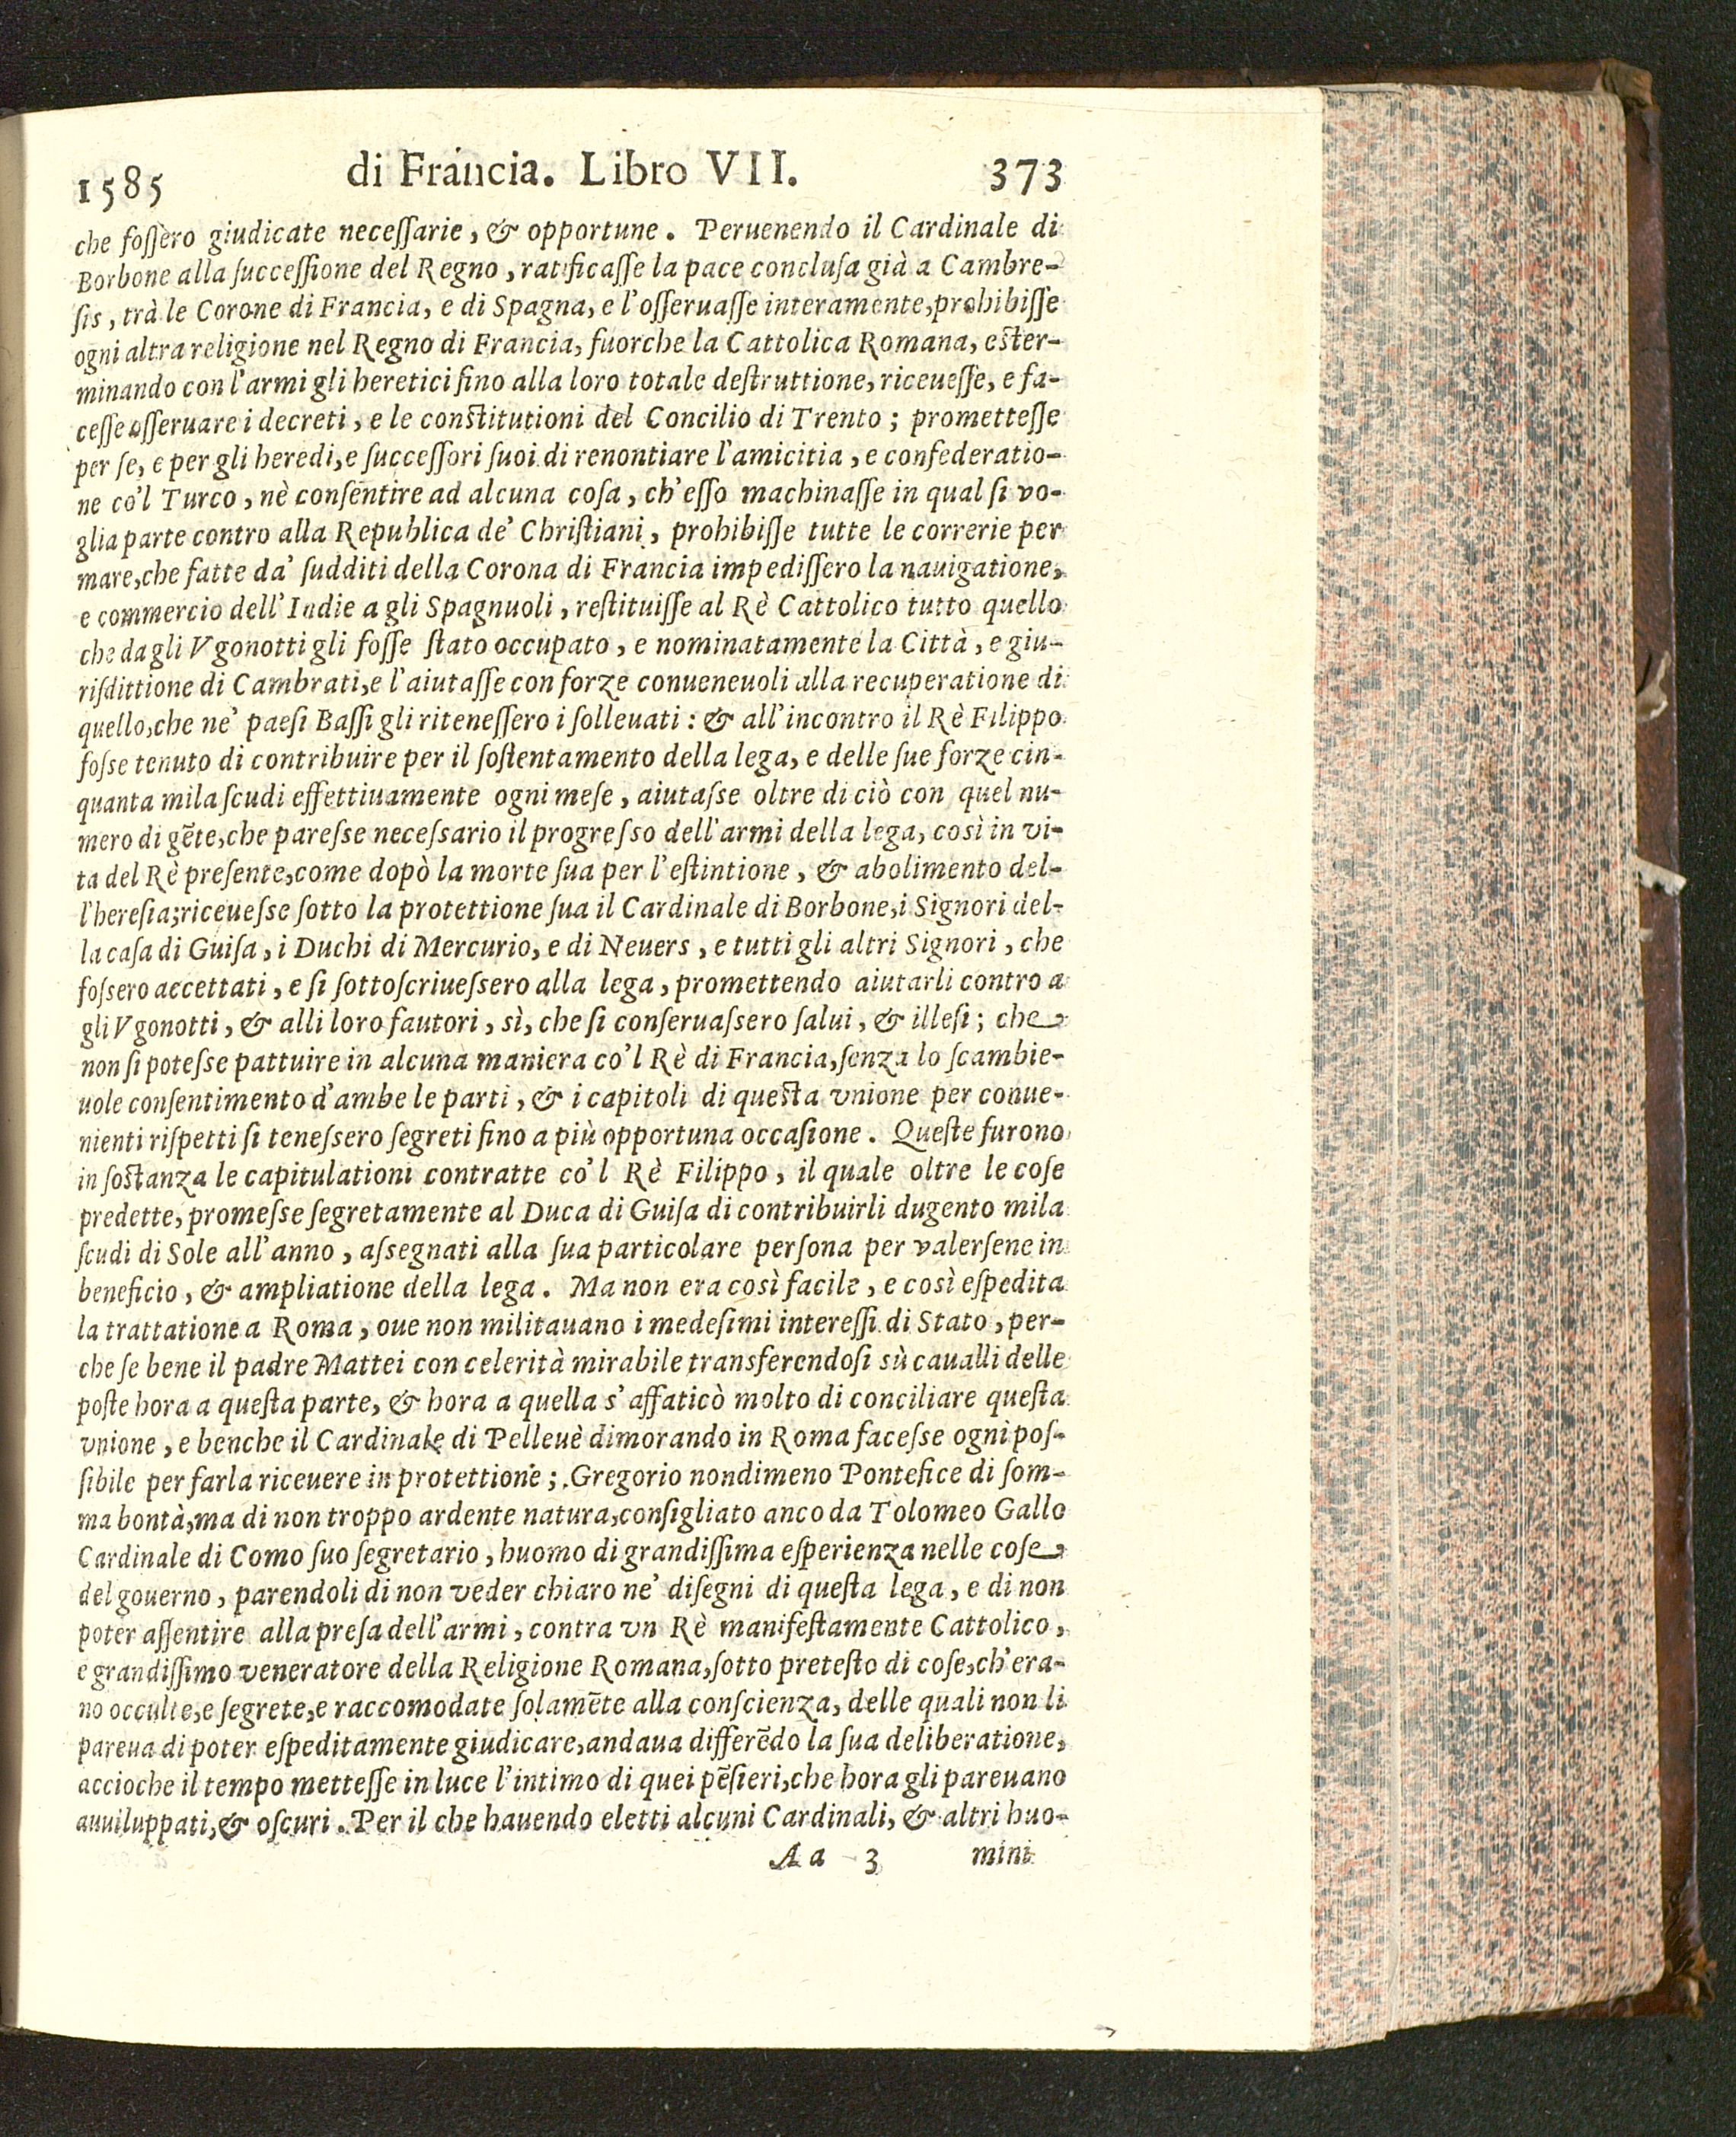 1585 di Francia. Libro VII. 373
che foſſero giudicate neceſſarie, & opportune. Peruenendo il Cardinale di
Borbone alla ſucceſſione del Regno, ratificaſſe la pace concluſa già a Cambre-
ſis, trà le Corone di Francia, e di Spagna, e l'oſſeruaſſe interamente, prohibiſſe
ogni altra religione nel Regno di Francia, fuorche la Cattolica Romana, eſter-
minando con l'armi gli heretici fino alla loro totale deſtruttione, riceueſſe, e fa-
ceſſe oſſeruare i decreti, e le conſtitutioni del Concilio di Trento; prometteſſe
per ſe, e per gli heredi, e ſucceſſori ſuoi di renontiare l'amicitia, e confederatio-
ne co'l Turco, nè conſentire ad alcuna coſa, ch'eſſo machinaſſe in qual ſi vo-
glia parte contro alla Republica de' Chriſtiani, prohibiſſe tutte le correrie per
mare, che fatte da' ſudditi della Corona di Francia impediſſero la nauigatione,
e commercio dell'Indie a gli Spagnuoli, reſtituiſſe al Rè Cattolico tutto quello
che da gli Vgonotti gli foſſe ſtato occupato, e nominatamente la Città, e giu-
riſdittione di Cambrati, e l'aiutaſſe con forze conueneuoli alla recuperatione di
quello, che ne' paeſi Baſſi gli riteneſſero i ſolleuati: & all'incontro il Rè Filippo
foſse tenuto di contribuire per il ſoſtentamento della lega, e delle ſue forze cin-
quanta mila ſcudi effettiuamente ogni meſe, aiutaſse oltre di ciò con quel nu-
mero di gẽte, che pareſse neceſsario il progreſso dell'armi della lega, così in vi-
ta del Rè preſente, come dopò la morte ſua per l'eſtintione, & abolimento del-
l'hereſia; riceueſse ſotto la protettione ſua il Cardinale di Borbone, i Signori del-
la caſa di Guiſa, i Duchi di Mercurio, e di Neuers, e tutti gli altri Signori, che
foſsero accettati, e ſi ſottoſcriueſsero alla lega, promettendo aiutarli contro a
gli Vgonotti, & alli loro fautori, sì, che ſi conſeruaſsero ſalui, & illeſi; che
non ſi poteſse pattuire in alcuna maniera co'l Rè di Francia, ſenza lo ſcambie-
uole conſentimento d'ambe le parti, & i capitoli di queſta vnione per conue-
nienti riſpetti ſi teneſsero ſegreti fino a più opportuna occaſione. Queſte furono
in ſoſtanza le capitulationi contratte co'l Rè Filippo, il quale oltre le coſe
predette, promeſse ſegretamente al Duca di Guiſa di contribuirli dugento mila
ſcudi di Sole all'anno, aſsegnati alla ſua particolare perſona per valerſene in
beneficio, & ampliatione della lega. Ma non era così facile, e così eſpedita
la trattatione a Roma, oue non militauano i medeſimi intereſſi di Stato, per-
che ſe bene il padre Mattei con celerità mirabile transferendoſi sù caualli delle
poſte hora a queſta parte, & hora a quella s'affaticò molto di conciliare queſta
vnione, e benche il Cardinale di Pelleuè dimorando in Roma faceſse ogni poſ-
ſibile per farla riceuere in protettione; Gregorio nondimeno Pontefice di ſom-
ma bontà, ma di non troppo ardente natura, conſigliato anco da Tolomeo Gallo
Cardinale di Como ſuo ſegretario, huomo di grandiſſima eſperienza nelle coſe
del gouerno, parendoli di non veder chiaro ne' diſegni di queſta lega, e di non
poter aſſentire alla preſa dell'armi, contra vn Rè manifeſtamente Cattolico,
e grandiſſimo veneratore della Religione Romana, ſotto preteſto di coſe, ch'era-
no occulte, e ſegrete, e raccomodate ſolamẽte alla conſcienza, delle quali non li
pareua di poter eſpeditamente giudicare, andaua differẽdo la ſua deliberatione,
accioche il tempo metteſſe in luce l'intimo di quei pẽſieri, che hora gli pareuano
auuiluppati, & oſcuri. Per il che hauendo eletti alcuni Cardinali, & altri huo-
Aa 3 mini